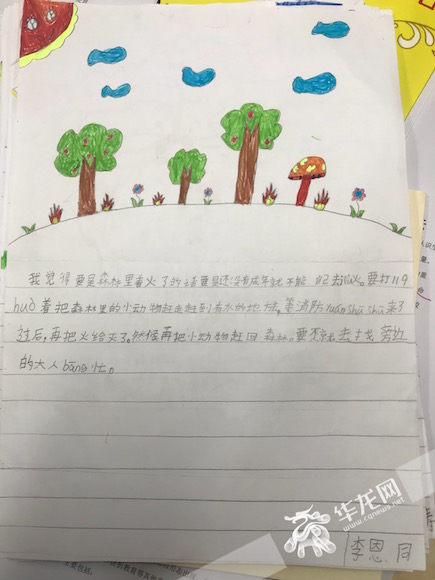 我觉得要是森林里着火了的话要是还没有成年就不能自己去扑火。要打119
huò着把森林里的小动物赶走赶到有水的地方,等消防yuán shū shu来了
过后,再把火给灭了。然候再把小动物赶回森林。要不就去找旁边
的大人bāng忙。
李恩同
华龙网
www.cqnews.net